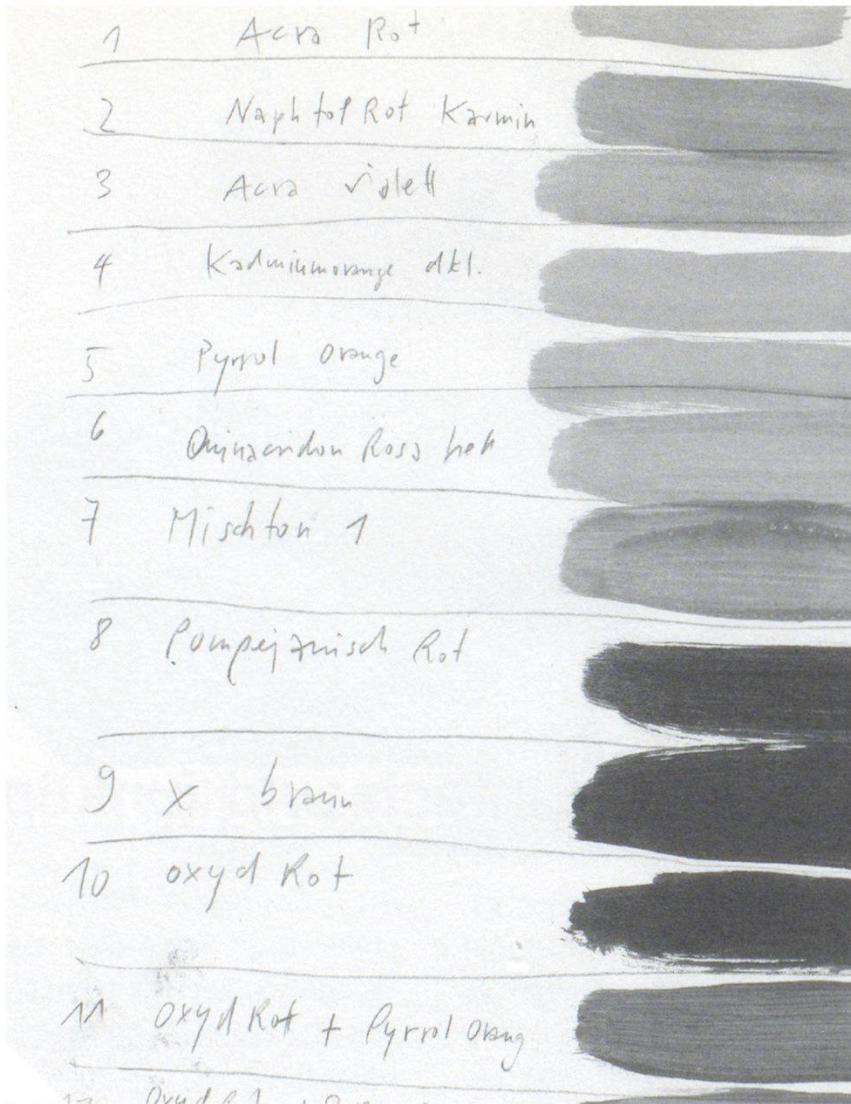 1 Acra Rot
2 Naphtol Rot Karmin
3 Acra violett
4 Kadmiumorange dkl.
5 Pyrrol Orange
6 Quinacridon Rosa hell
7 Mischton 1
8 Pompejanisch Rot
9 X braun
10 oxyd Rot
11 Oxyd Rot + Pyrrol Orang